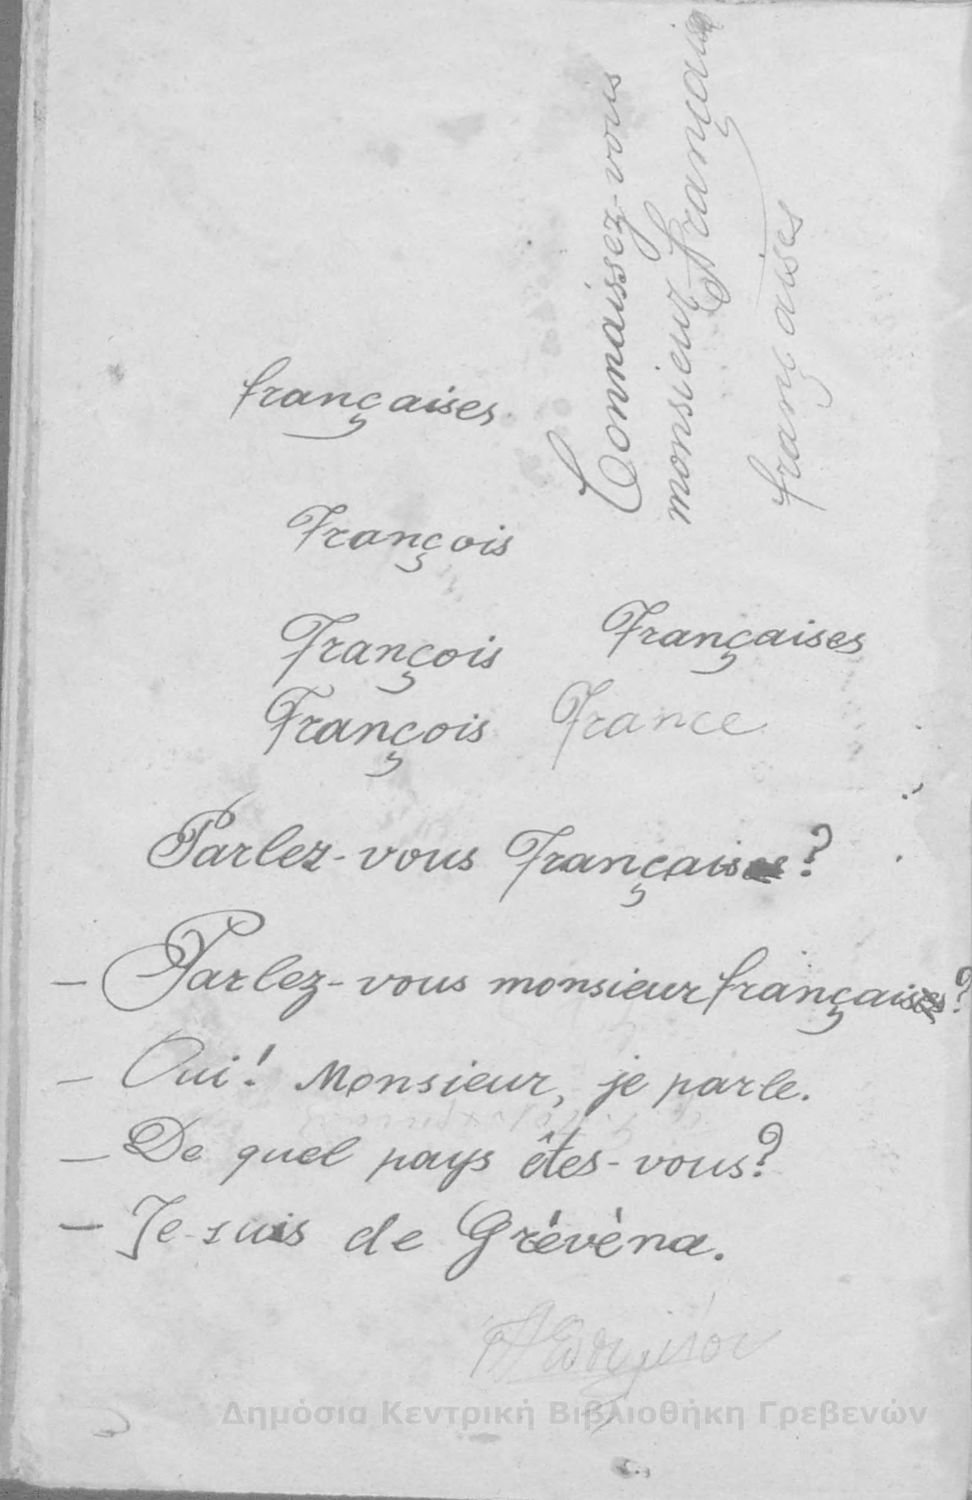 Connaissez-vous
monsieur français
françaises
françaises
François
François Françaises
François France
Parlez-vous Français?
— Parlez-vous monsieur français?
— Oui! Monsieur, je parle.
— De quel pays êtes-vous?
— Je suis de Grévéna.
Δημόσια Κεντρική Βιβλιοθήκη Γρεβενών